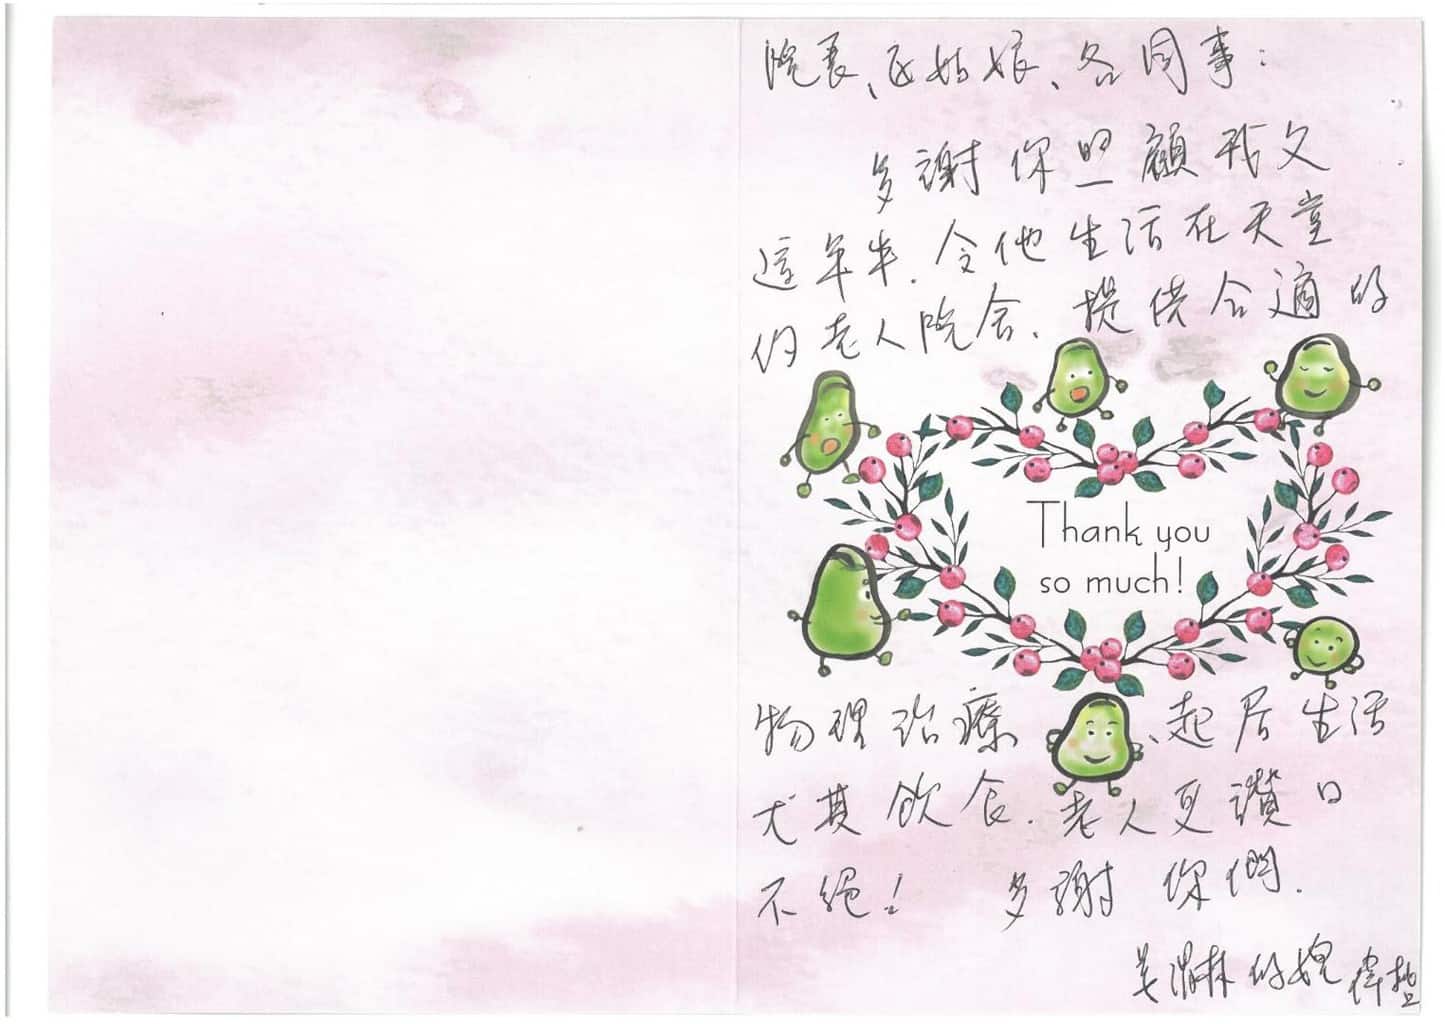 院長、區姑娘、各同事:
多謝你照顧我父
這年半.令他生活在天堂
的老人院舍.提供合適的
Thank you
so much!
物理治療、起居生活
尤其飲食.老人更讚口
不絕! 多謝你們.
的媳